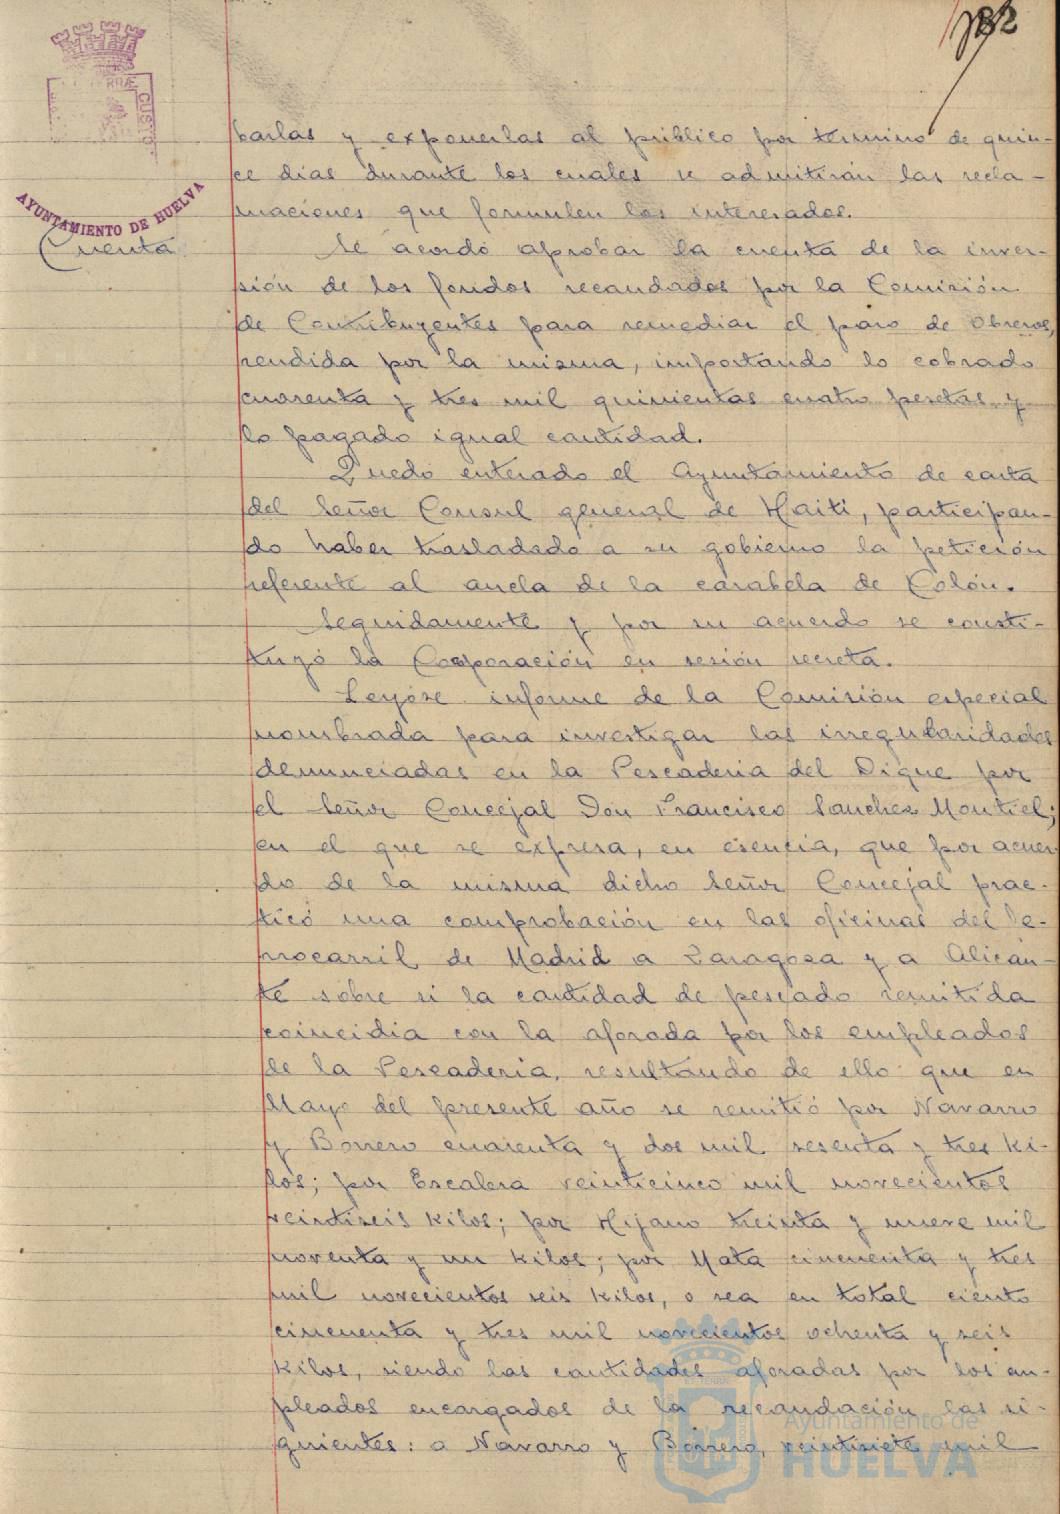 82
AYUNTAMIENTO DE HUELVA
Cuenta
barlas y exponerlas al público por término de quin-
ce dias durante los cuales se admitirán las recla-
maciones que formulen los interesados.
Se acordó aprobar la cuenta de la inver-
sión de los fondos recaudados por la Comisión
de Contribuyentes para remediar el paro de Obreros,
rendida por la misma, importando lo cobrado
cuarenta y tres mil quinientas cuatro pesetas y
lo pagado igual cantidad.
Quedó enterado el Ayuntamiento de carta
del Señor Consul general de Haiti, participan-
do haber trasladado a su gobierno la petición
referente al ancla de la carabela de Colón.
Seguidamente y por su acuerdo se consti-
tuyó la Corporación en sesión secreta.
Leyóse informe de la Comisión especial
nombrada para investigar las irregularidades
denunciadas en la Pescaderia del Dique por
el Señor Concejal Don Francisco Sanchez Montiel;
en el que se expresa, en esencia, que por acuer-
do de la misma dicho Señor Concejal prac-
ticó una comprobación en las oficinas del fe-
rrocarril de Madrid a Zaragoza y a Alican-
te sobre si la cantidad de pescado remitida
coincidia con la aforada por los empleados
de la Pescaderia, resultando de ello que en
Mayo del presente año se remitió por Navarro
y Borrero cuarenta y dos mil sesenta y tres ki-
los; por Escalera veinticinco mil novecientos
veintiseis kilos; por Hijano treinta y nueve mil
noventa y un kilos; por Mata cincuenta y tres
mil novecientos seis kilos, o sea en total ciento
cincuenta y tres mil novecientos ochenta y seis
kilos, siendo las cantidades aforadas por los em-
pleados encargados de la recaudación las si-
guientes: a Navarro y Borrero, veintisiete mil
Ayuntamiento de
HUELVA